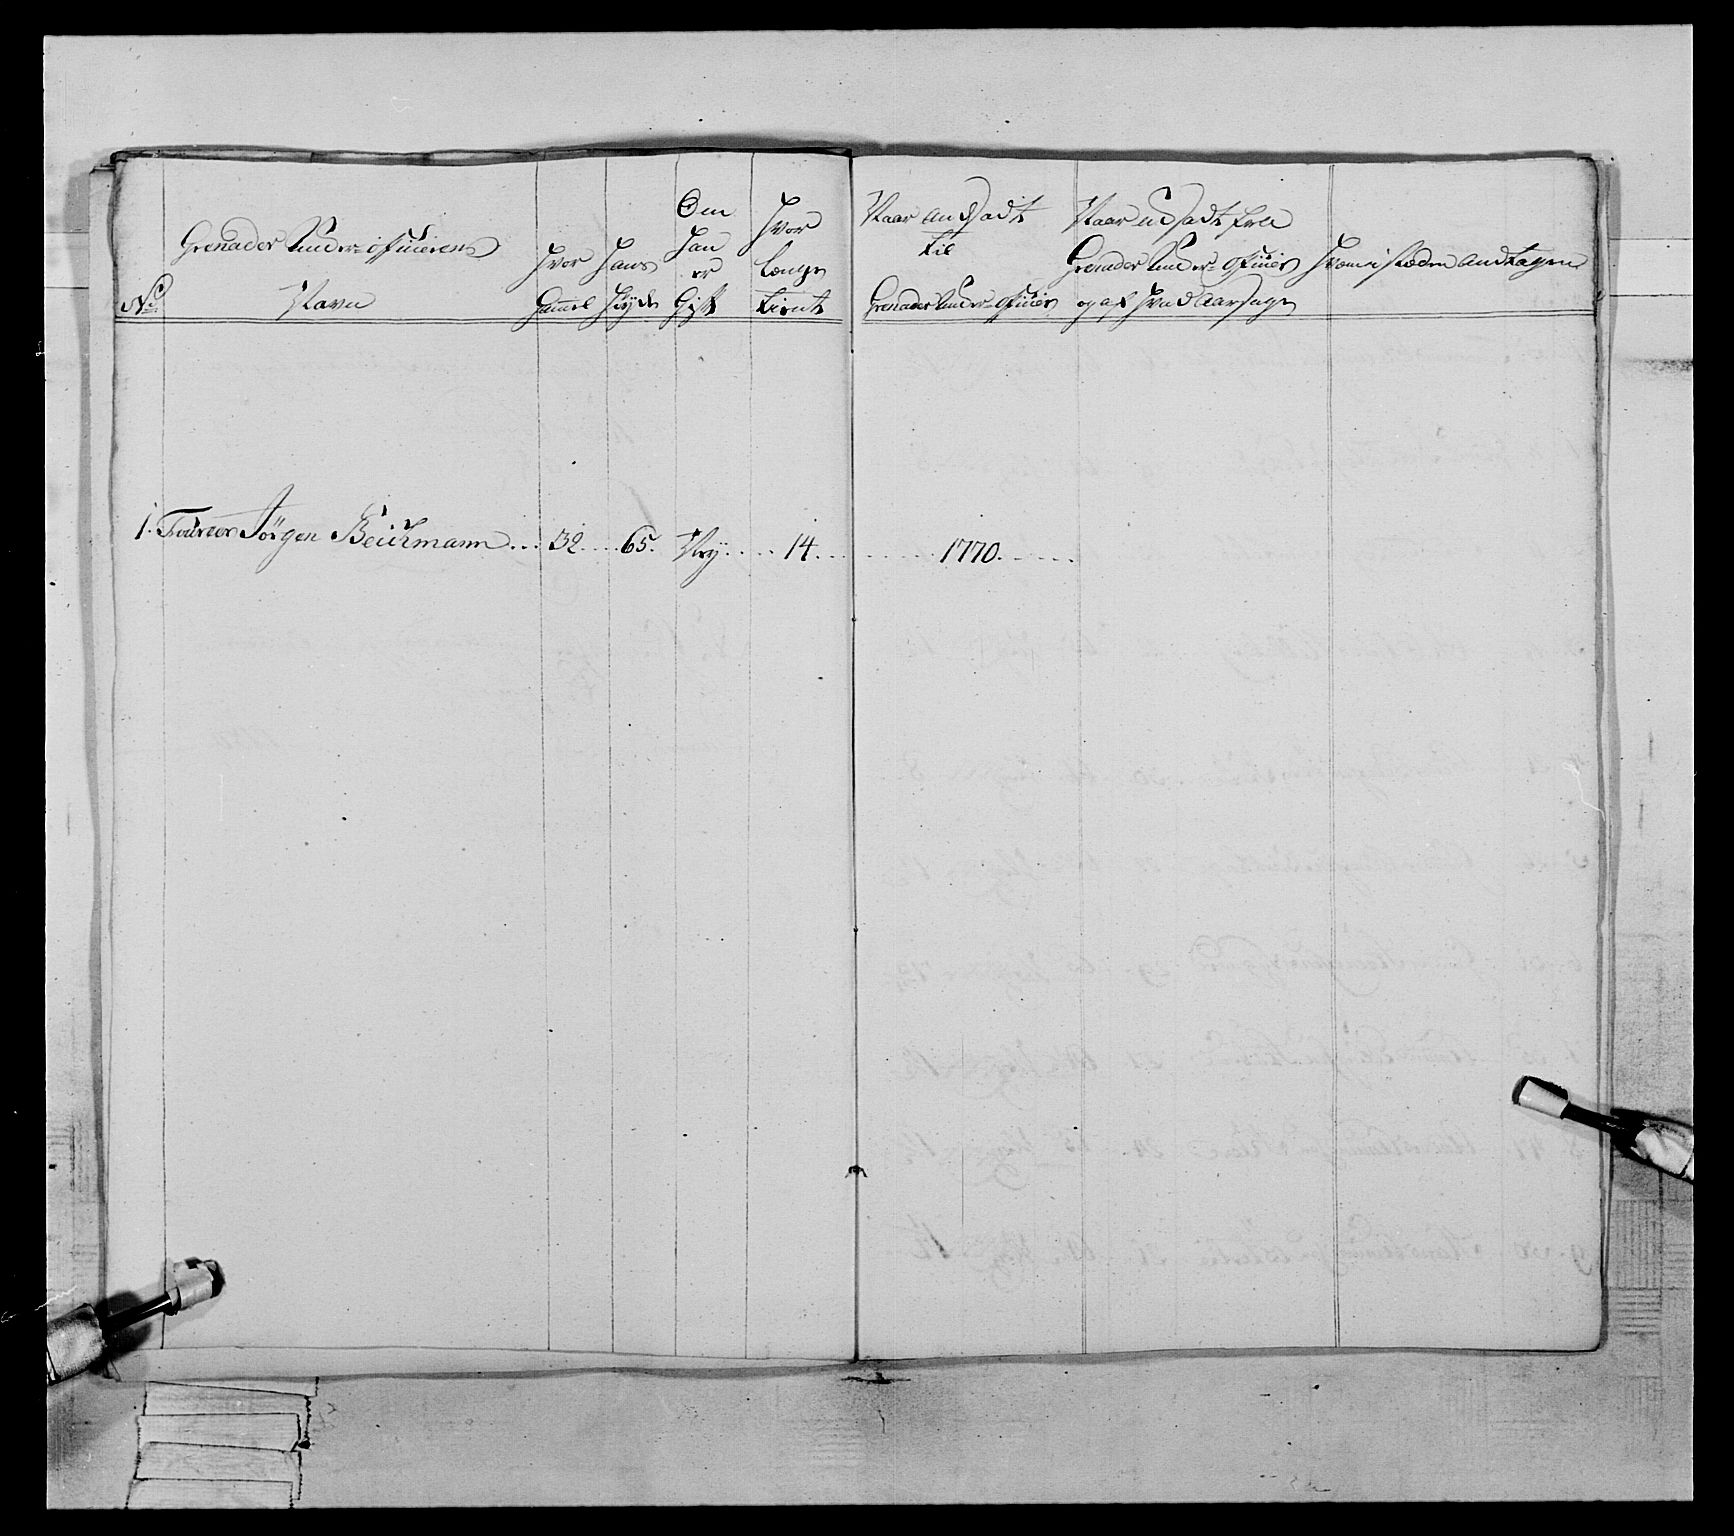 No
Grenadeer Under-officierens
Navn
Hvor
Gammel
Hans
Høyde
Om
Han
er
Gift
Hvor
længe
tient
Naar andsadt
til
Grenadeer Under-officier
Naar udsadt fra
Grenadeer Under-officier
og af hvad Aarsage
Hvem i stæden andtagen
1. Fourier Jörgen Beichmann... 32.... 65. Ney.... 14. 1770.